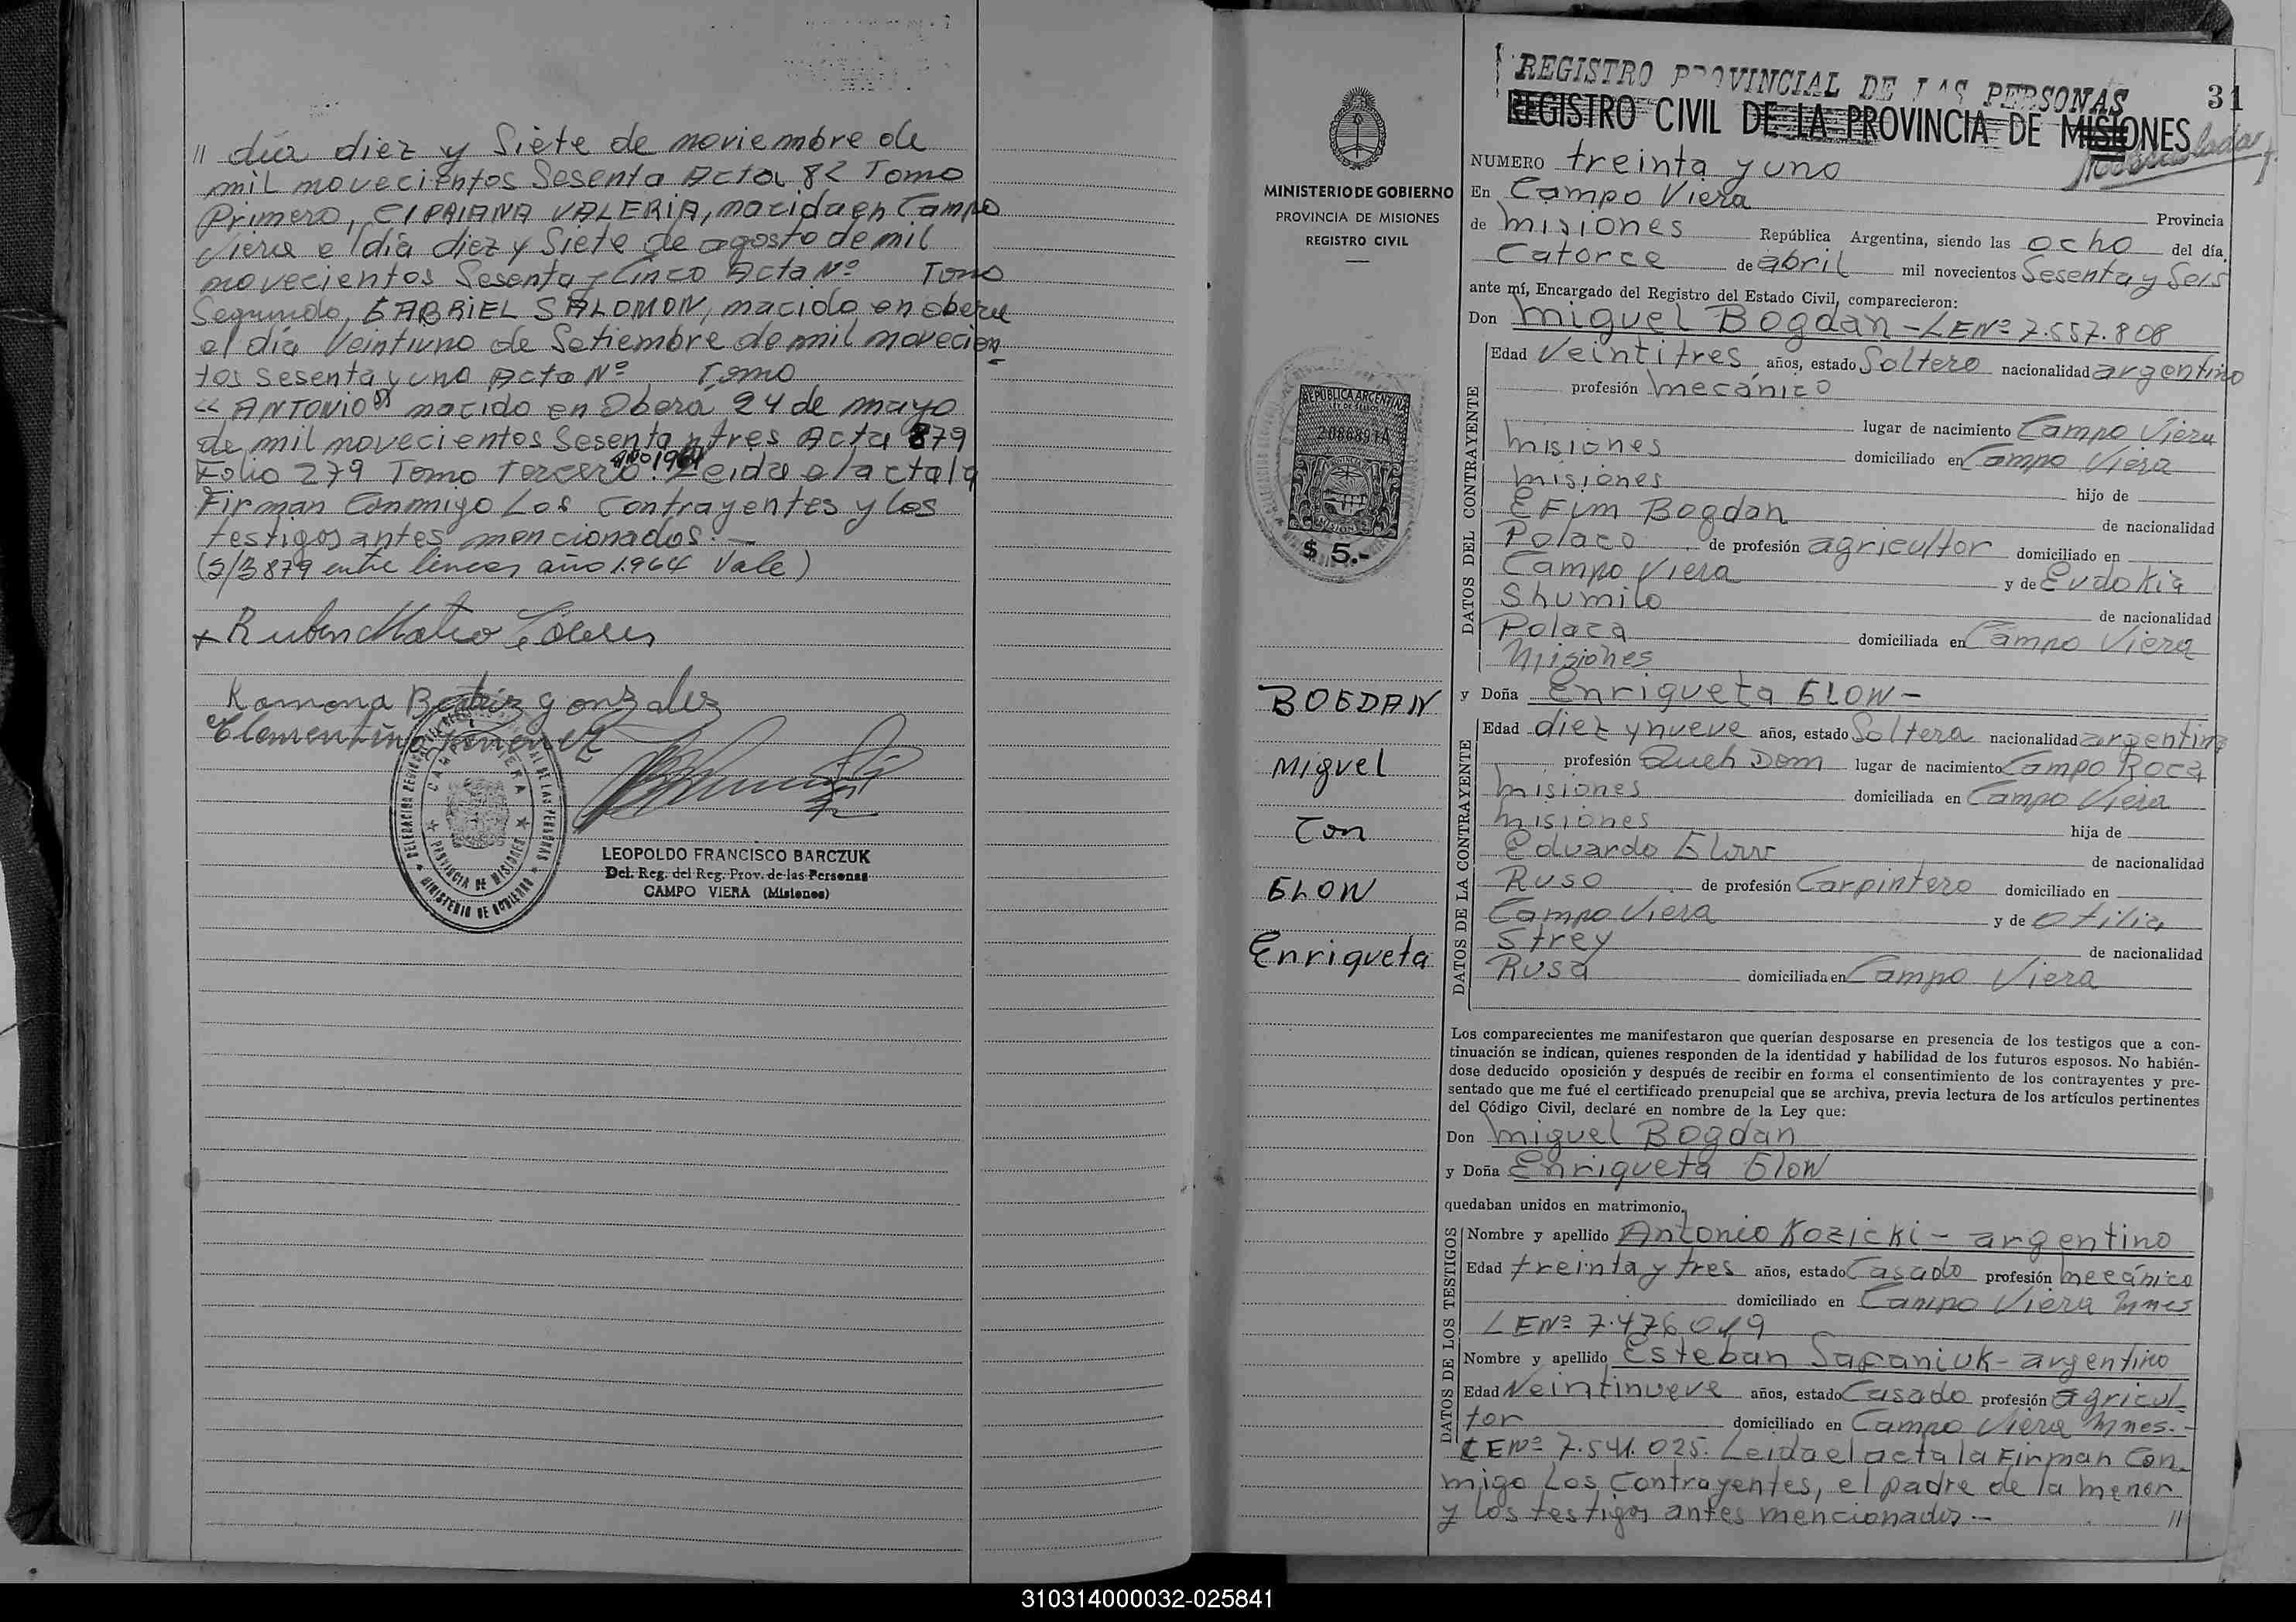 " día diez y Siete de noviembre de
mil novecientos Sesenta Acta 82 Tomo
Primero, CIPRIANA VALERIA, nacida en Campo
Viera el día diez y Siete de agosto de mil
novecientos Sesenta y Cinco Acta Nº Tomo
Segundo, GABRIEL SALOMON, nacido en Oberá
el día Veintiuno de Setiembre de mil novecien
tos Sesenta y uno Acta Nº Tomo
" ANTONIO" nacido en Oberá 24 de mayo
de mil novecientos Sesenta y tres Acta 879
año 1964
Folio 279 Tomo Tercero. Leida el acta la
Firman Conmigo Los Contrayentes y los
testigos antes mencionados. -
(S/B 879 entre lineas año 1.964 Vale)
x Ruben Mateo
Ramona Beatriz gonzalez
Clementino
CAMPO VIERA
PROVINCIA DE MISIONES
MINISTERIO DE GOBIERNO
LEOPOLDO FRANCISCO BARCZUK
Del. Reg. del Reg. Prov. de las Personas
CAMPO VIERA (Misiones)
REGISTRO PROVINCIAL DE LAS PERSONAS
31
REGISTRO CIVIL DE LA PROVINCIA DE MISIONES
MINISTERIO DE GOBIERNO
PROVINCIA DE MISIONES
REGISTRO CIVIL
REPUBLICA ARGENTINA
MISIONES
$ 5.-
BOGDAN
Miguel
Con
GLOW
Enriqueta
NUMERO treinta y uno
En Campo Viera
Provincia
de Misiones República Argentina, siendo las ocho del día
Catorce de abril mil novecientos Sesenta y Seis
ante mí, Encargado del Registro del Estado Civil, comparecieron:
Don Miguel Bogdan - LE Nº 7.557.808
DATOS DEL CONTRAYENTE
Edad Veintitres años, estado Soltero nacionalidad argentino
profesión Mecánico
lugar de nacimiento Campo Viera
Misiones domiciliado en Campo Viera
Misiones hijo de
Efim Bogdan de nacionalidad
Polaco de profesión agricultor domiciliado en
Campo Viera y de Evdokia
Shumilo de nacionalidad
Polaca domiciliada en Campo Viera
Misiones
y Doña Enriqueta GLOW -
DATOS DE LA CONTRAYENTE
Edad diez y nueve años, estado Soltera nacionalidad argentina
profesión Queh Dom lugar de nacimiento Campo Roca
Misiones domiciliada en Campo Viera
Misiones hija de
Eduardo Glow de nacionalidad
Ruso de profesión Carpintero domiciliado en
Campo Viera y de Otilia
Strey de nacionalidad
Rusa domiciliada en Campo Viera
Los comparecientes me manifestaron que querían desposarse en presencia de los testigos que a con-
tinuación se indican, quienes responden de la identidad y habilidad de los futuros esposos. No habién-
dose deducido oposición y después de recibir en forma el consentimiento de los contrayentes y pre-
sentado que me fué el certificado prenupcial que se archiva, previa lectura de los artículos pertinentes
del Código Civil, declaré en nombre de la Ley que:
Don Miguel Bogdan
y Doña Enriqueta Glow
quedaban unidos en matrimonio.
DATOS DE LOS TESTIGOS
Nombre y apellido Antonio Kozicki - argentino
Edad treinta y tres años, estado Casado profesión Mecánico
domiciliado en Campo Viera Mnes
LE Nº 7.476.019
Nombre y apellido Esteban Sapaniuk - argentino
Edad Veintinueve años, estado Casado profesión agricul
tor domiciliado en Campo Viera Mnes. -
LE Nº 7.541.025. Leida el acta la Firman Con-
migo Los Contrayentes, el padre de la menor
y los testigos antes mencionados. - //
310314000032-025841